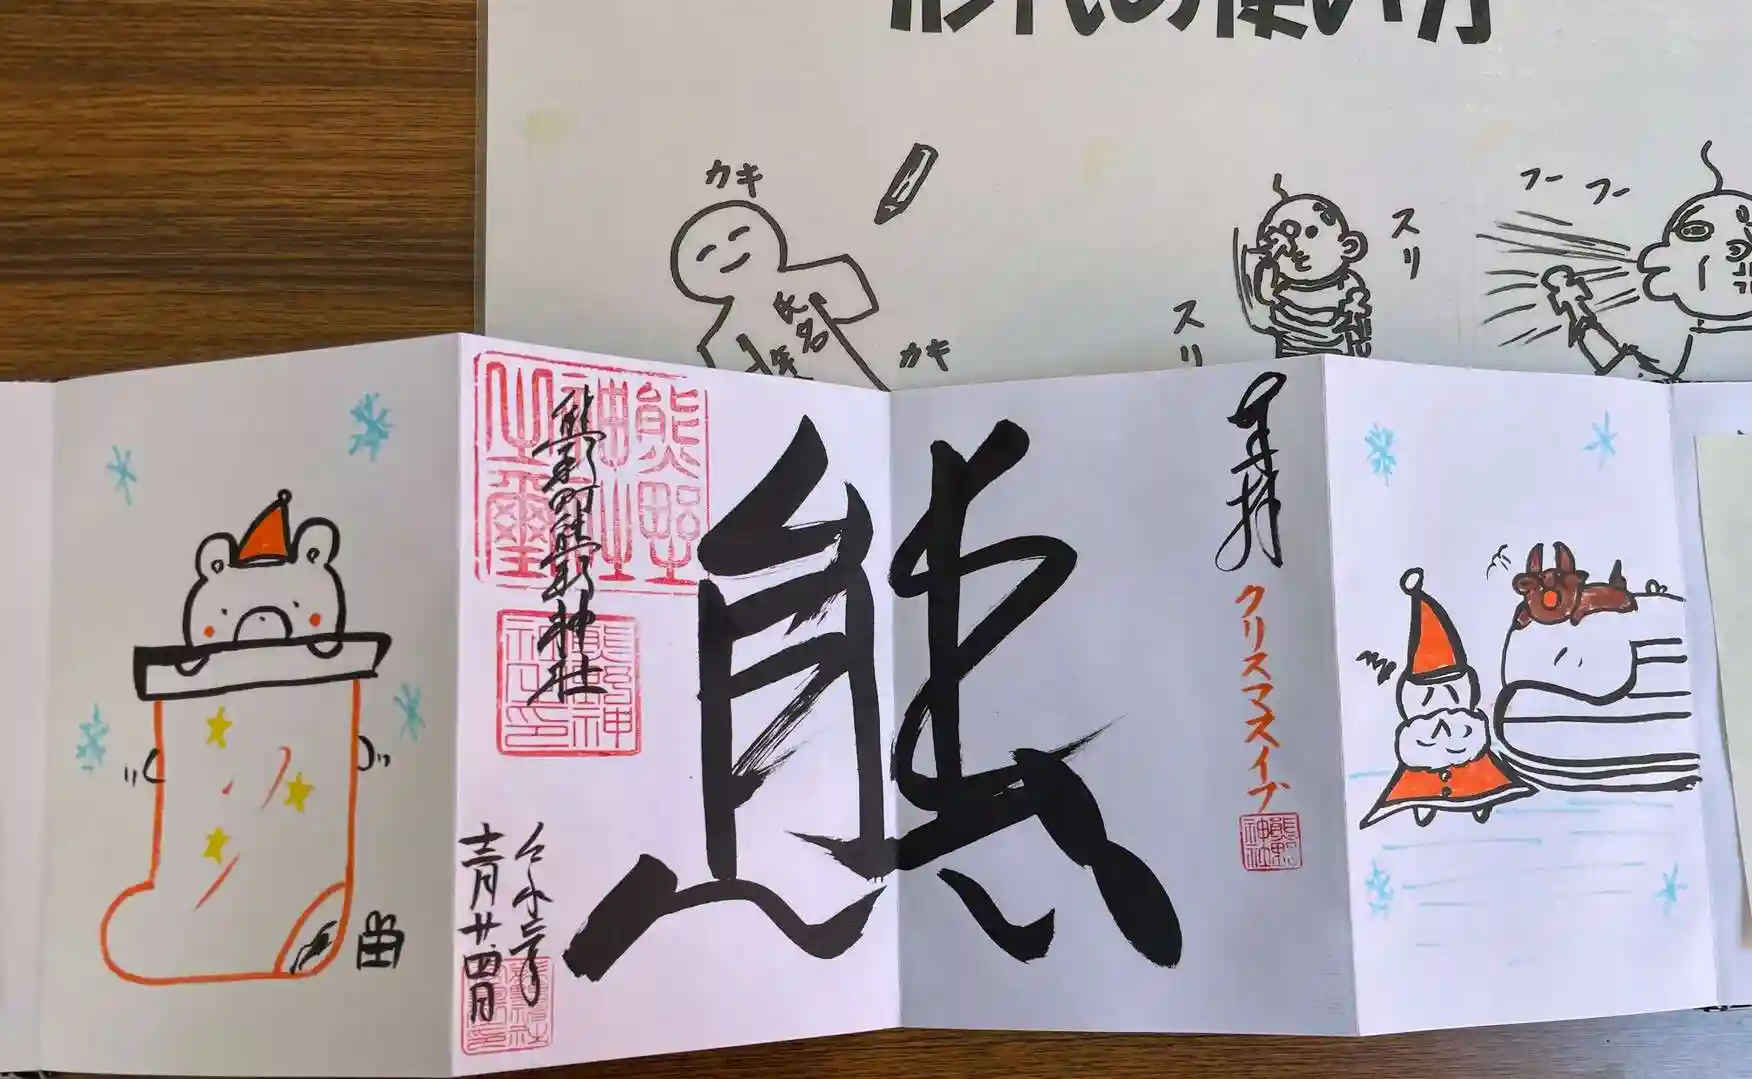 形代の使い方
カキ
氏名
カキ
スリ
スリ
フー フー
奉拝
クリスマスイブ
熊野神社
熊
熊野町熊野神社
令和三年
十二月廿四日